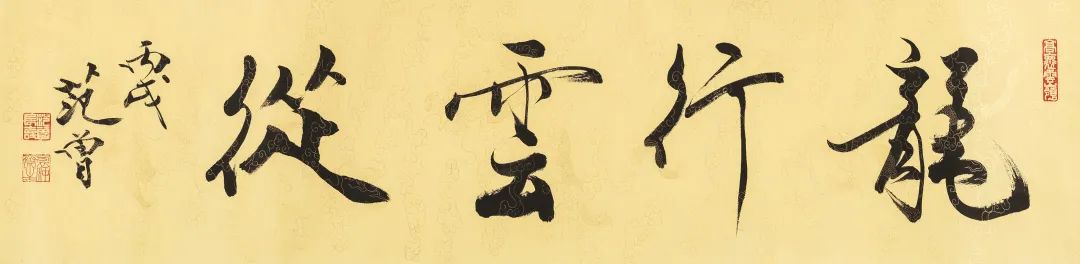 龍行雲從
丙戌
范曾